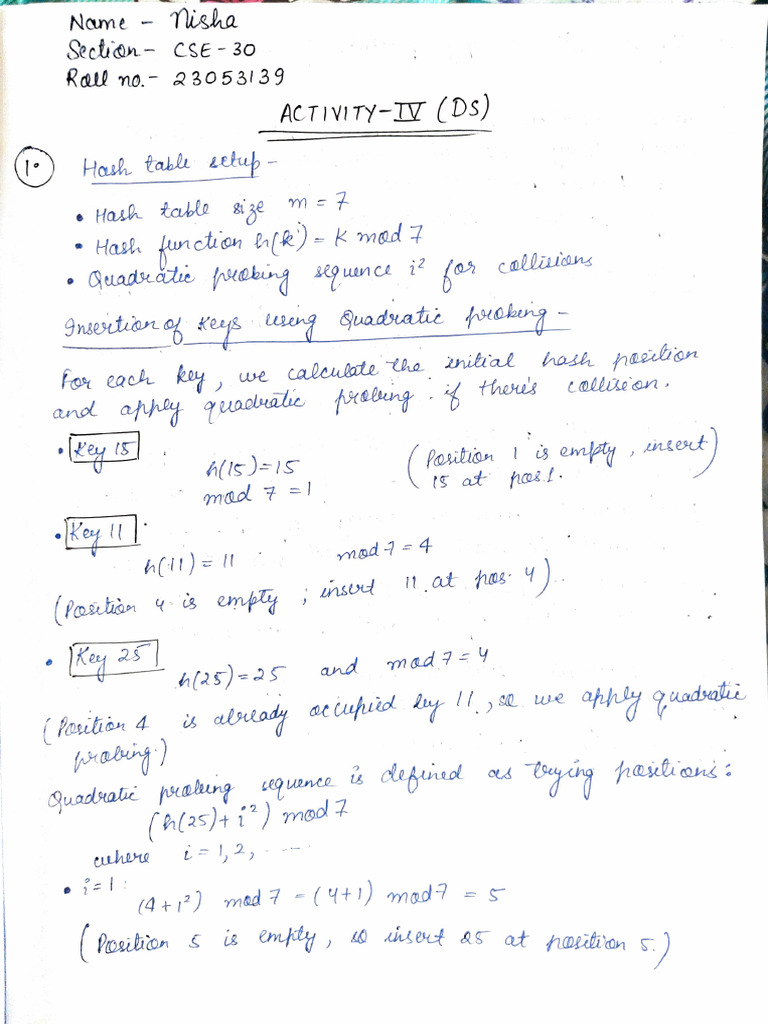 Name - Nisha
Section - CSE-30
Roll no.- 23053139
ACTIVITY-IV (DS)
1. Hash table setup -
• Hash table size m = 7
• Hash function h(k) = K mod 7
• Quadratic probing sequence i² for collisions
Insertion of keys using Quadratic probing -
For each key, we calculate the initial hash position
and apply quadratic probing if there's collision.
• Key 15
h(15)=15 (Position 1 is empty, insert
mod 7 =1 15 at pos.1.)
• Key 11
h(11) = 11 mod 7 = 4
(Position 4 is empty ; insert 11 at pos. 4)
• Key 25
h(25)=25 and mod 7 = 4
(Position 4 is already occupied by 11, so we apply quadratic
probing.)
Quadratic probing sequence is defined as trying positions:
(h(25)+ i²) mod 7
where i = 1, 2, .....
• i=1:
(4+1²) mod 7 = (4+1) mod 7 = 5
(Position 5 is empty, so insert 25 at position 5.)